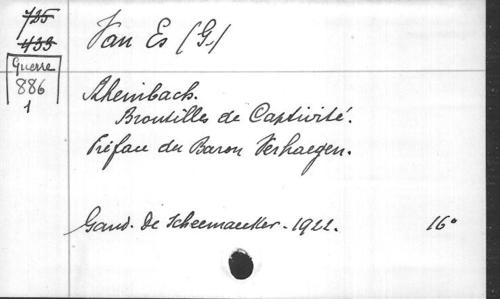 725
433
Guerre
886
1
Van Es (G.)
Rheinbach.
Broutilles de Captivité.
Préface du Baron Verhaegen.
Gand. De Scheemaecker. 1922. 16°